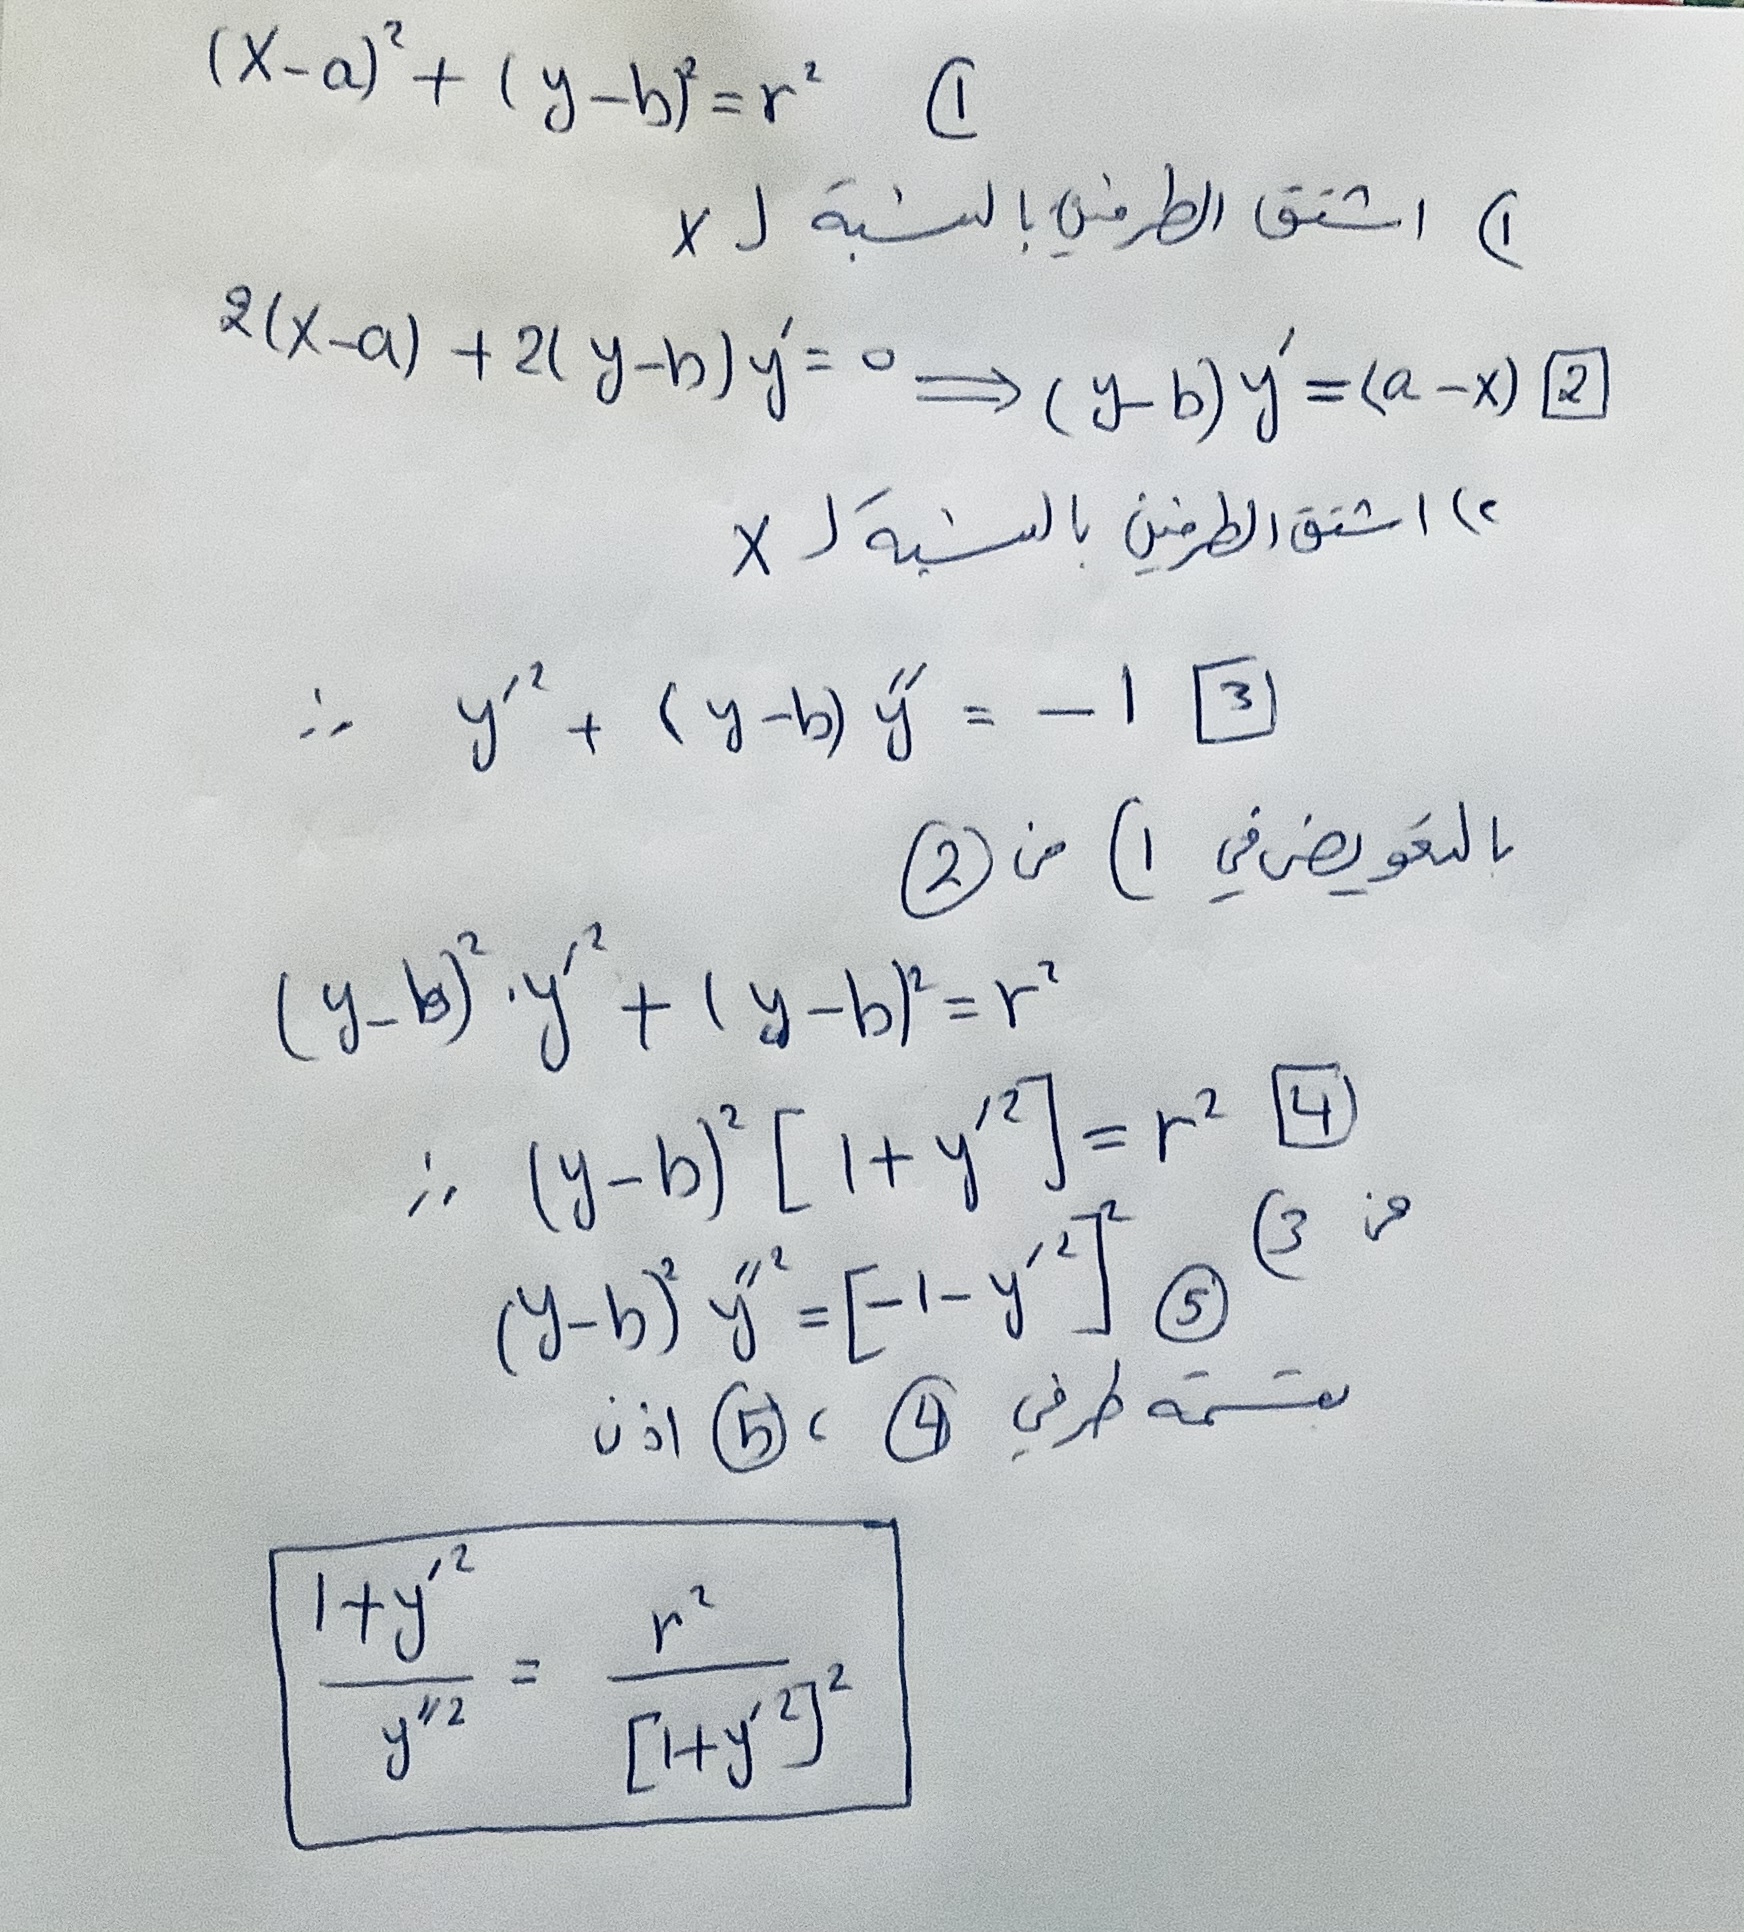 (x-a)² + (y-b)² = r² (1
1) اشتق الطرفين بالنسبة لـ x
2(x-a) + 2(y-b)y′ = 0 ⟹ (y-b)y′ = (a-x) [2]
٢) اشتق الطرفين بالنسبة لـ x
∴ y′² + (y-b)y″ = -1 [3]
بالتعويض في 1) من ②
(y-b)²·y′² + (y-b)² = r²
∴ (y-b)² [1+y′²] = r² [4]
من 3)
(y-b)² y″² = [-1-y′²]² ⑤
بقسمة طرفي ④ ، ⑤ اذن
(1+y′²)/(y″²) = r²/([1+y′²]²)